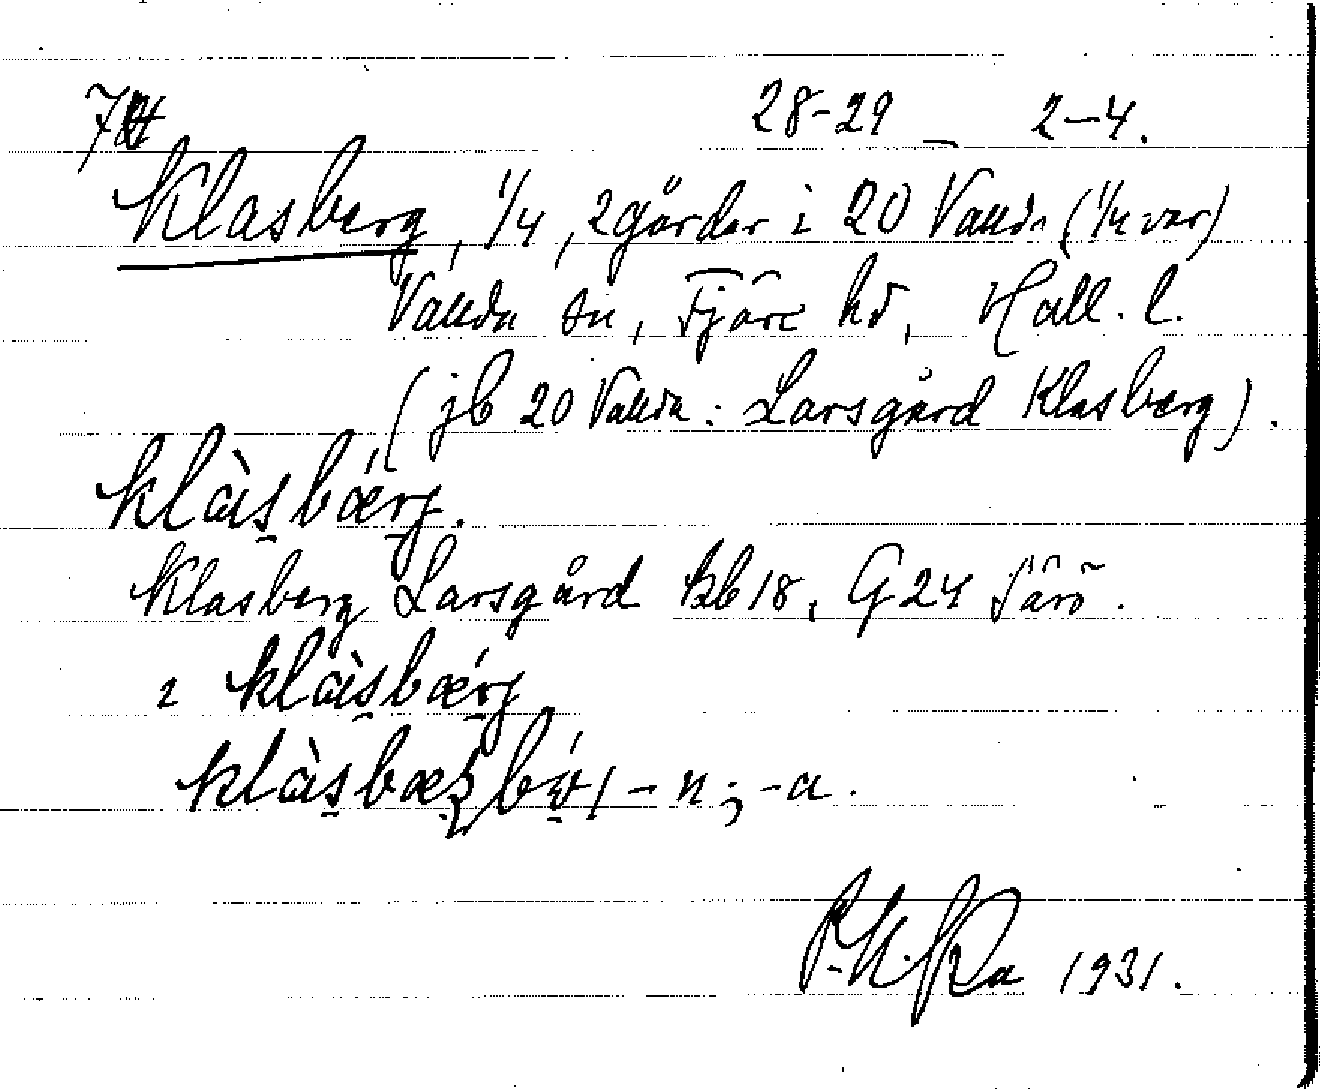 28-29 - 2-4.
Klasberg, 1/4, 2 gårdar i 20 Vallda (1/4 var)
Vallda sn, Fjäre hd, Hall. l.
(jb 20 Vallda: Larsgård Klasberg).
klàs̱bǽrj.
Klasberg Larsgård kb 18, G 24
i klàs̱bǽrj
klàs̱bæ -n; -a.
1931.